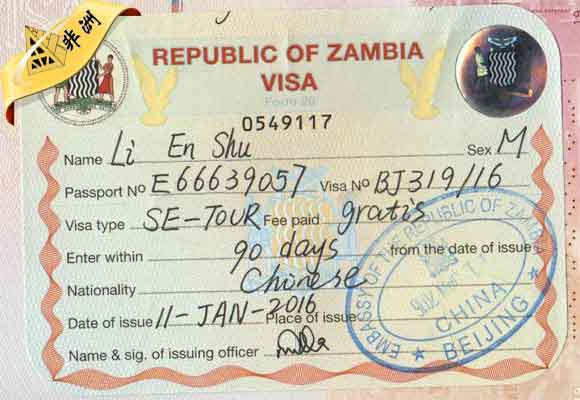 非洲
REPUBLIC OF ZAMBIA
VISA
Form 20
0549117
Name Li En Shu Sex M
Passport No E66639057 Visa No BJ319/16
Visa type SE-TOUR Fee paid gratis
Enter within 90 days from the date of issue
Nationality Chinese
Date of issue 11-JAN-2016 Place of issue
Name & sig. of issuing officer
EMBASSY OF THE REPUBLIC OF ZAMBIA
CHINA
★ BEIJING ★